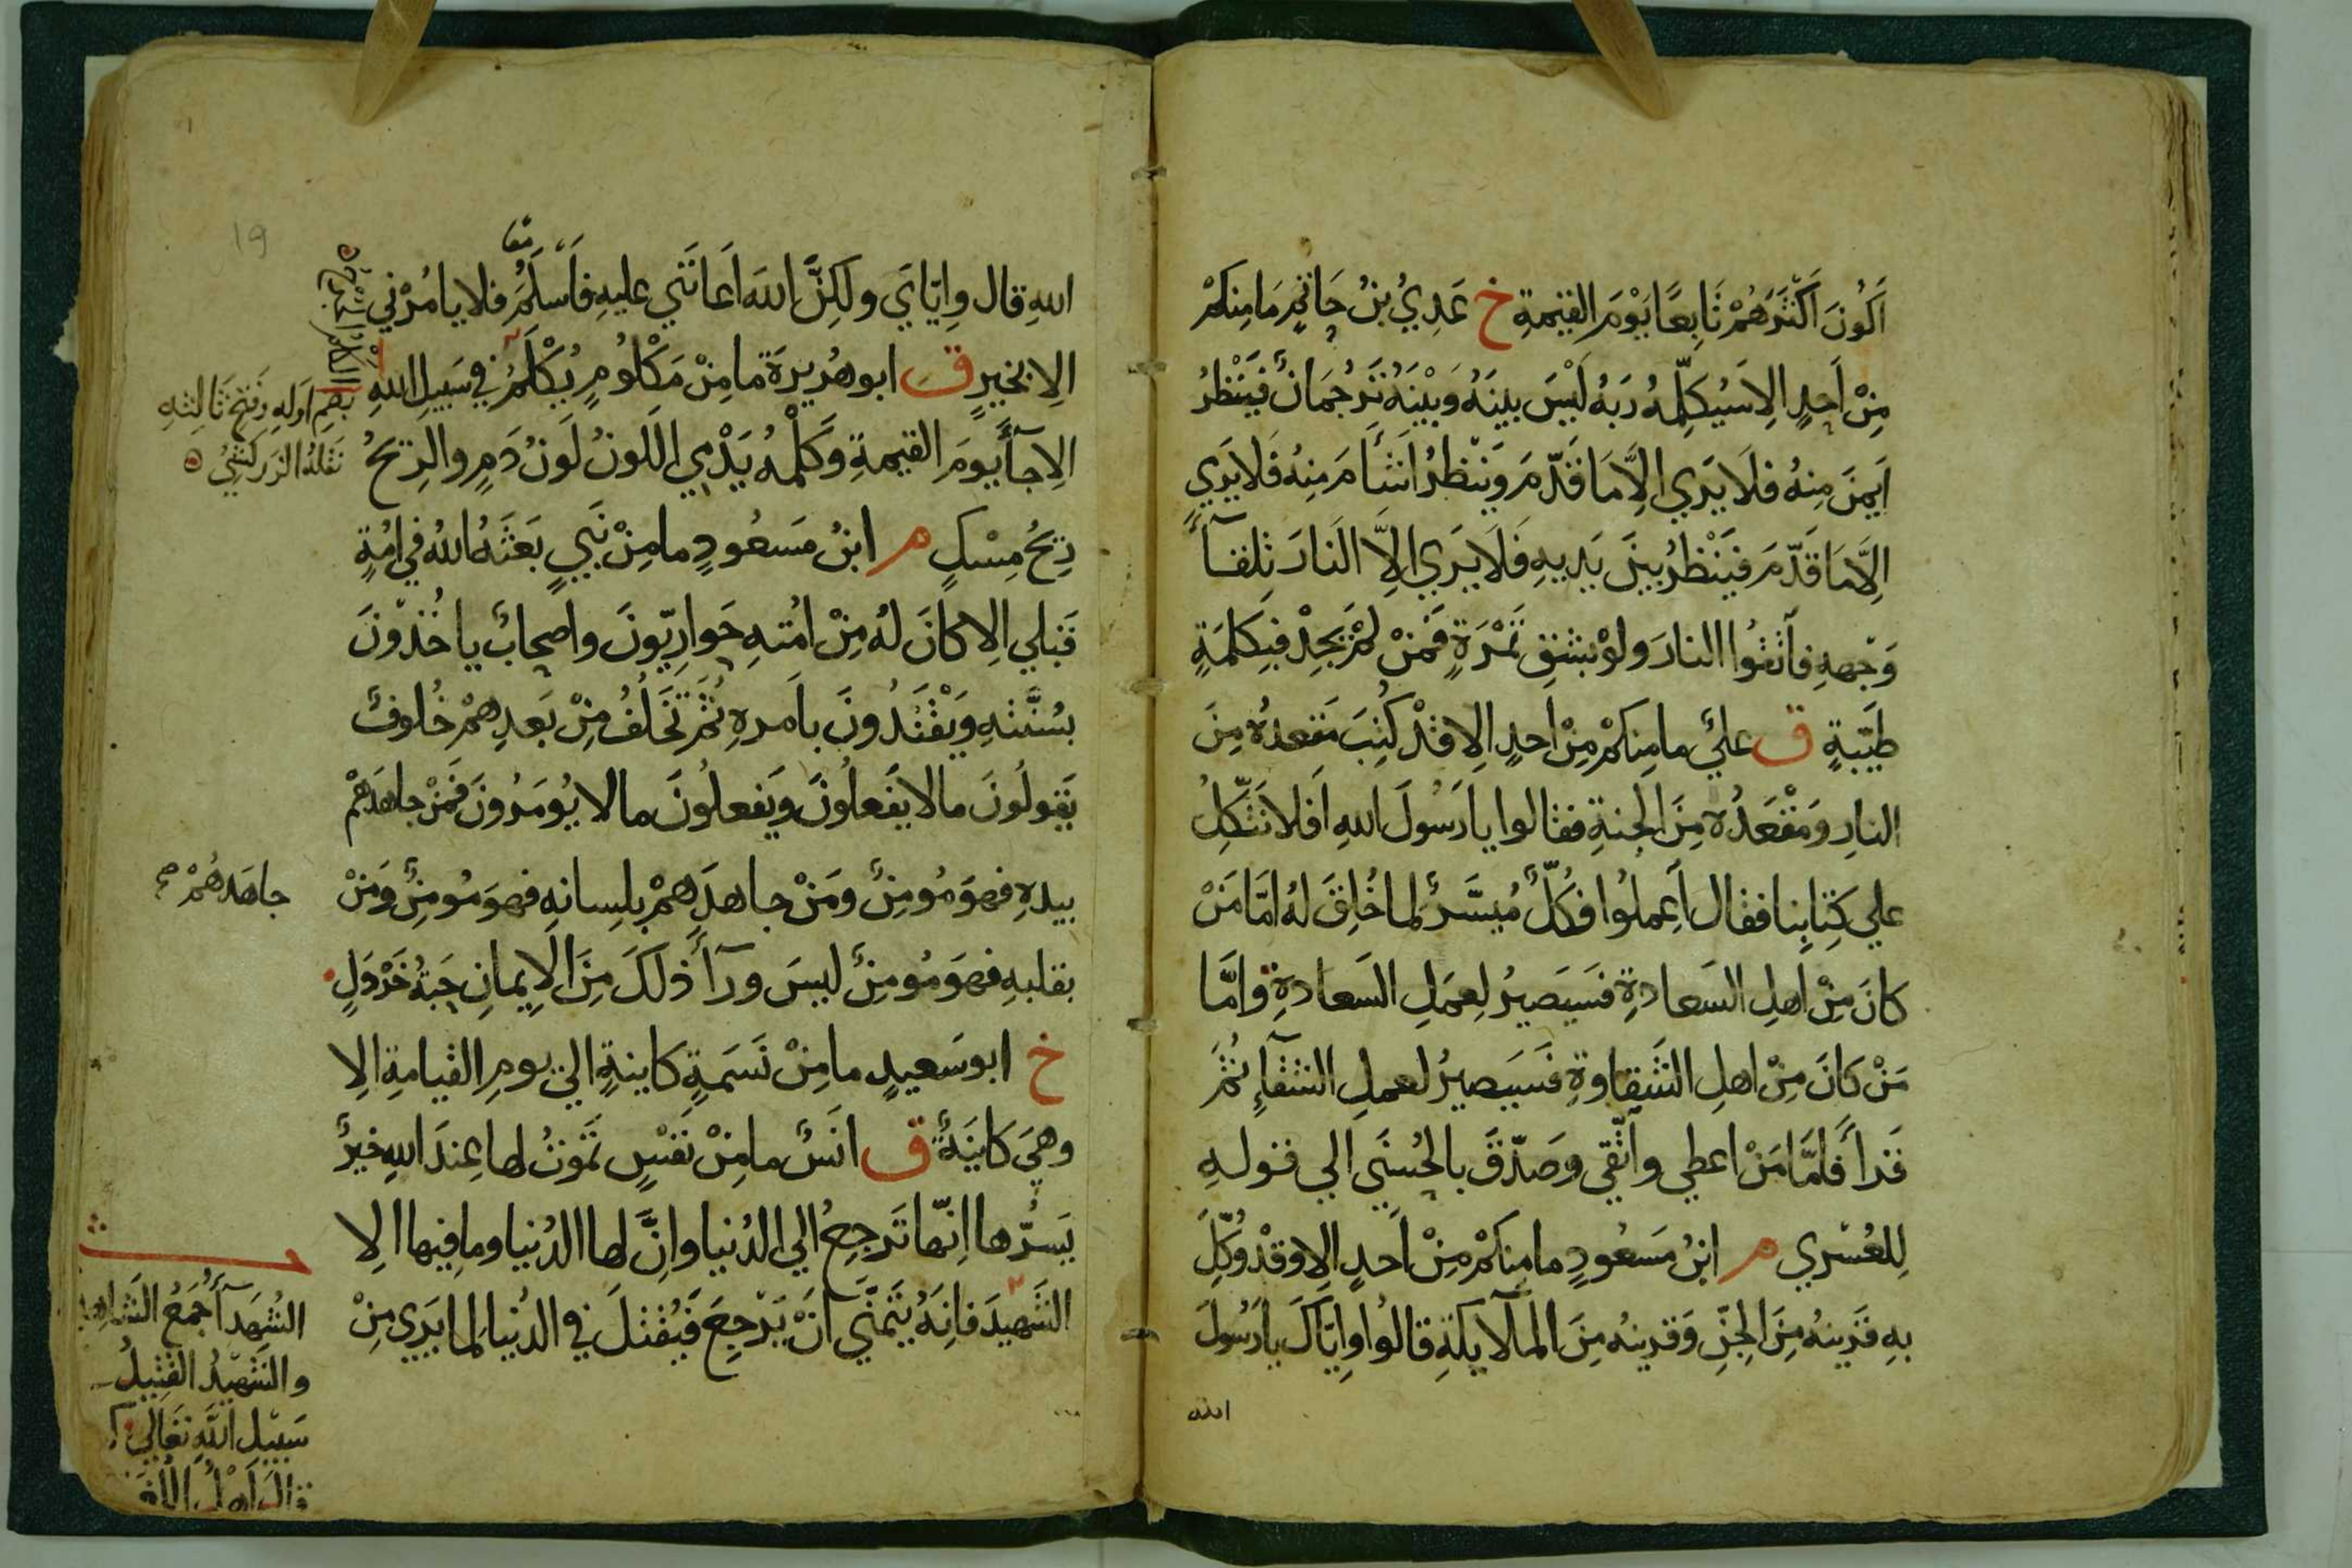 اَكُونَ اَكْثَرَهُمْ تَابِعًا يَوْمَ القِيمةِ خ عَدِيُّ بنُ حَاتِمٍ مَا مِنكمْ
مِنْ اَحدٍ الاِ سَيُكلِّمهُ رَبهُ لَيْسَ بينَهُ وَبيْنَهُ تَرجُمَانٌ فيَنْظرُ
اَيمنَ مِنهُ فلَا يَرَي الاَّ مَا قَدّمَ وَينْظرُ اشَأمَ مِنهُ فَلا يَرَي
الاَّ مَا قَدّمَ فيَنْظرُ بينَ يَديهِ فَلَا يَرَي الاَّ النَارَ تِلقآءَ
وَجْههِ فاَتقُوا النارَ ولوْ بشقِ تَمْرَةٍ فمَنْ لمْ يَجِدْ فبِكلمَةٍ
طيّبةٍ ق عليٌ ما مِنكمْ مِنْ اَحدٍ الاِ قدْ كُتِبَ مَقعدُه مِنَ
النارِ وَمَقْعَدُه مِنَ الجنةِ فقالوا يا رَسُولَ اللهِ اَفلا نَتّكِلُ
علي كِتابِنا فقال اَعِملُوا فكُلٌّ مُيسَّرٌ لما خُلِقَ لهُ امّا مَنْ
كانَ مِنْ اهلِ السَعادةِ فسَيَصيرُ لِعمَلِ السَعادةِ وامَّا
مَنْ كانَ مِنْ اهلِ الشَقِاوةِ فسَيَصيرُ لعملِ الشقآءِ ثمَّ
قَرأ فامَّا مَنْ اعطي واَتّقي وصَدّقَ بالحُسنَي الي قولهِ
لِلعُسْري م ابنُ مَسعُودٍ ما مِنكمْ مِنْ اَحدٍ الاِ وقدْ وُكّلَ
بهِ قَرينهُ مِنَ الجِنّ وَقرينهُ مِنَ المآلايكةِ قالُوا وِايّاكَ يا رَسُولَ
الله
اللهِ قال وِايّايَ ولكِنَّ اللهَ اَعانَني عليهِ فاَسلَمَُ فلا يامُرْني
معا
الاِ بخيرٍ ق ابو هُريرةَ ما مِنْ مَكْلُومٍ يُكْلَمُ في سَبيلِ اللهِ
الاِ جآءَ يومَ القيمةِ وَكَلْمُهُ يَدْمِي اللونُ لَونُ دَمٍ والرِيحُ
رِيحُ مِسْكٍ م ابنُ مَسعُودٍ ما مِنْ نَبيٍ بَعَثَهُ اللهُ في امُةٍ
قَبلي الاِ كانَ لهُ مِنْ امُتهِ حَوارِيّونَ واصحابٌ ياخُذُونَ
بسُنَّتهِ ويَقْتَدُونَ باَمرهِ ثمَّ تَخَلُفُ مِنْ بَعدِهمْ خُلوفٌ
يَقولُونَ ما لا يَفعلُونَ وَيَفعلُونَ ما لا يُومَرُونَ فَمَنْ جاهَدَهمْ
بيدهِ فهوَ مُومِنٌ ومَنْ جاهدَهمْ بلِسانهِ فهوَ مُومِنٌ وَمَنْ
بقلبهِ فهوَ مُومِنٌ ليسَ ورآءَ ذلكَ مِنَ الاِيمانِ حَبّةُ خَرْدَلٍ
خ ابو سَعيدٍ ما مِنْ نَسَمَةٍ كاينةٍ الي يومِ القيامةِ الاِ
وهيَ كَاينَةٌ ق انَسٌ ما مِنْ نَفسٍ تَموتُ لها عِندَ اللهِ خيرٌ
يَسُرُّها اِنّها تَرجِعُ الي الدُنيا وانَّ لها الدُنيا وما فِيها الاِ
الشَهيدَ فانِهُ يتَمَنَّي اَنْ يَرْجعَ فيُقتلَ في الدُنيا لما يَرَي مِنْ
بضم اَولهِ وَفتحِ ثَالثهِ
نَقلهُ الزركشيُ
جاهَدهُمْ صح
الشُهدآءُ جَمعُ الشَاهد
والشَهيدُ القَتِيلُ
سَبيلِ اللهِ تَعَالي